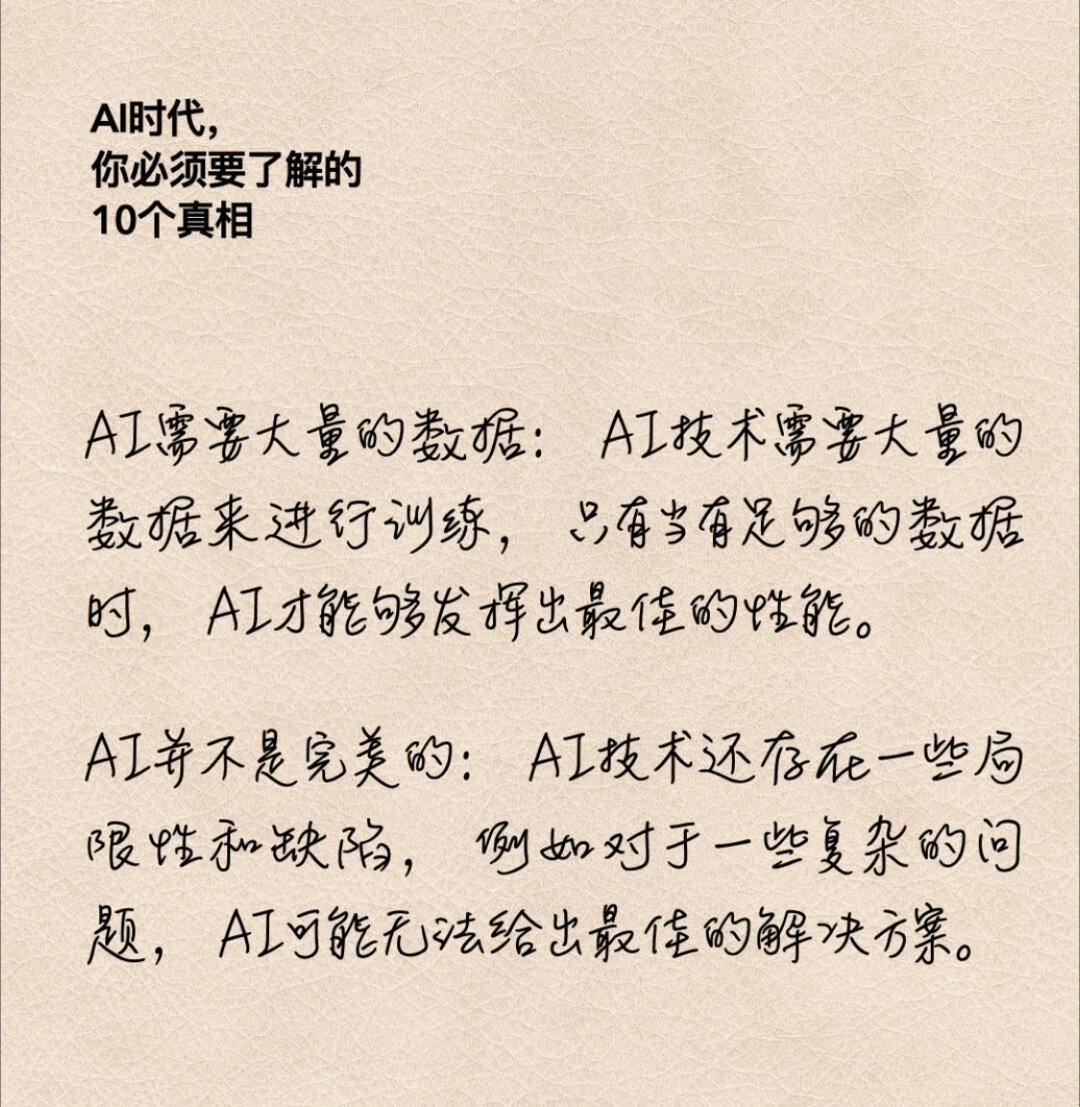 AI时代，
你必须要了解的
10个真相
AI需要大量的数据： AI技术需要大量的
数据来进行训练， 只有当有足够的数据
时， AI才能够发挥出最佳的性能。
AI并不是完美的： AI技术还存在一些局
限性和缺陷， 例如对于一些复杂的问
题， AI可能无法给出最佳的解决方案。